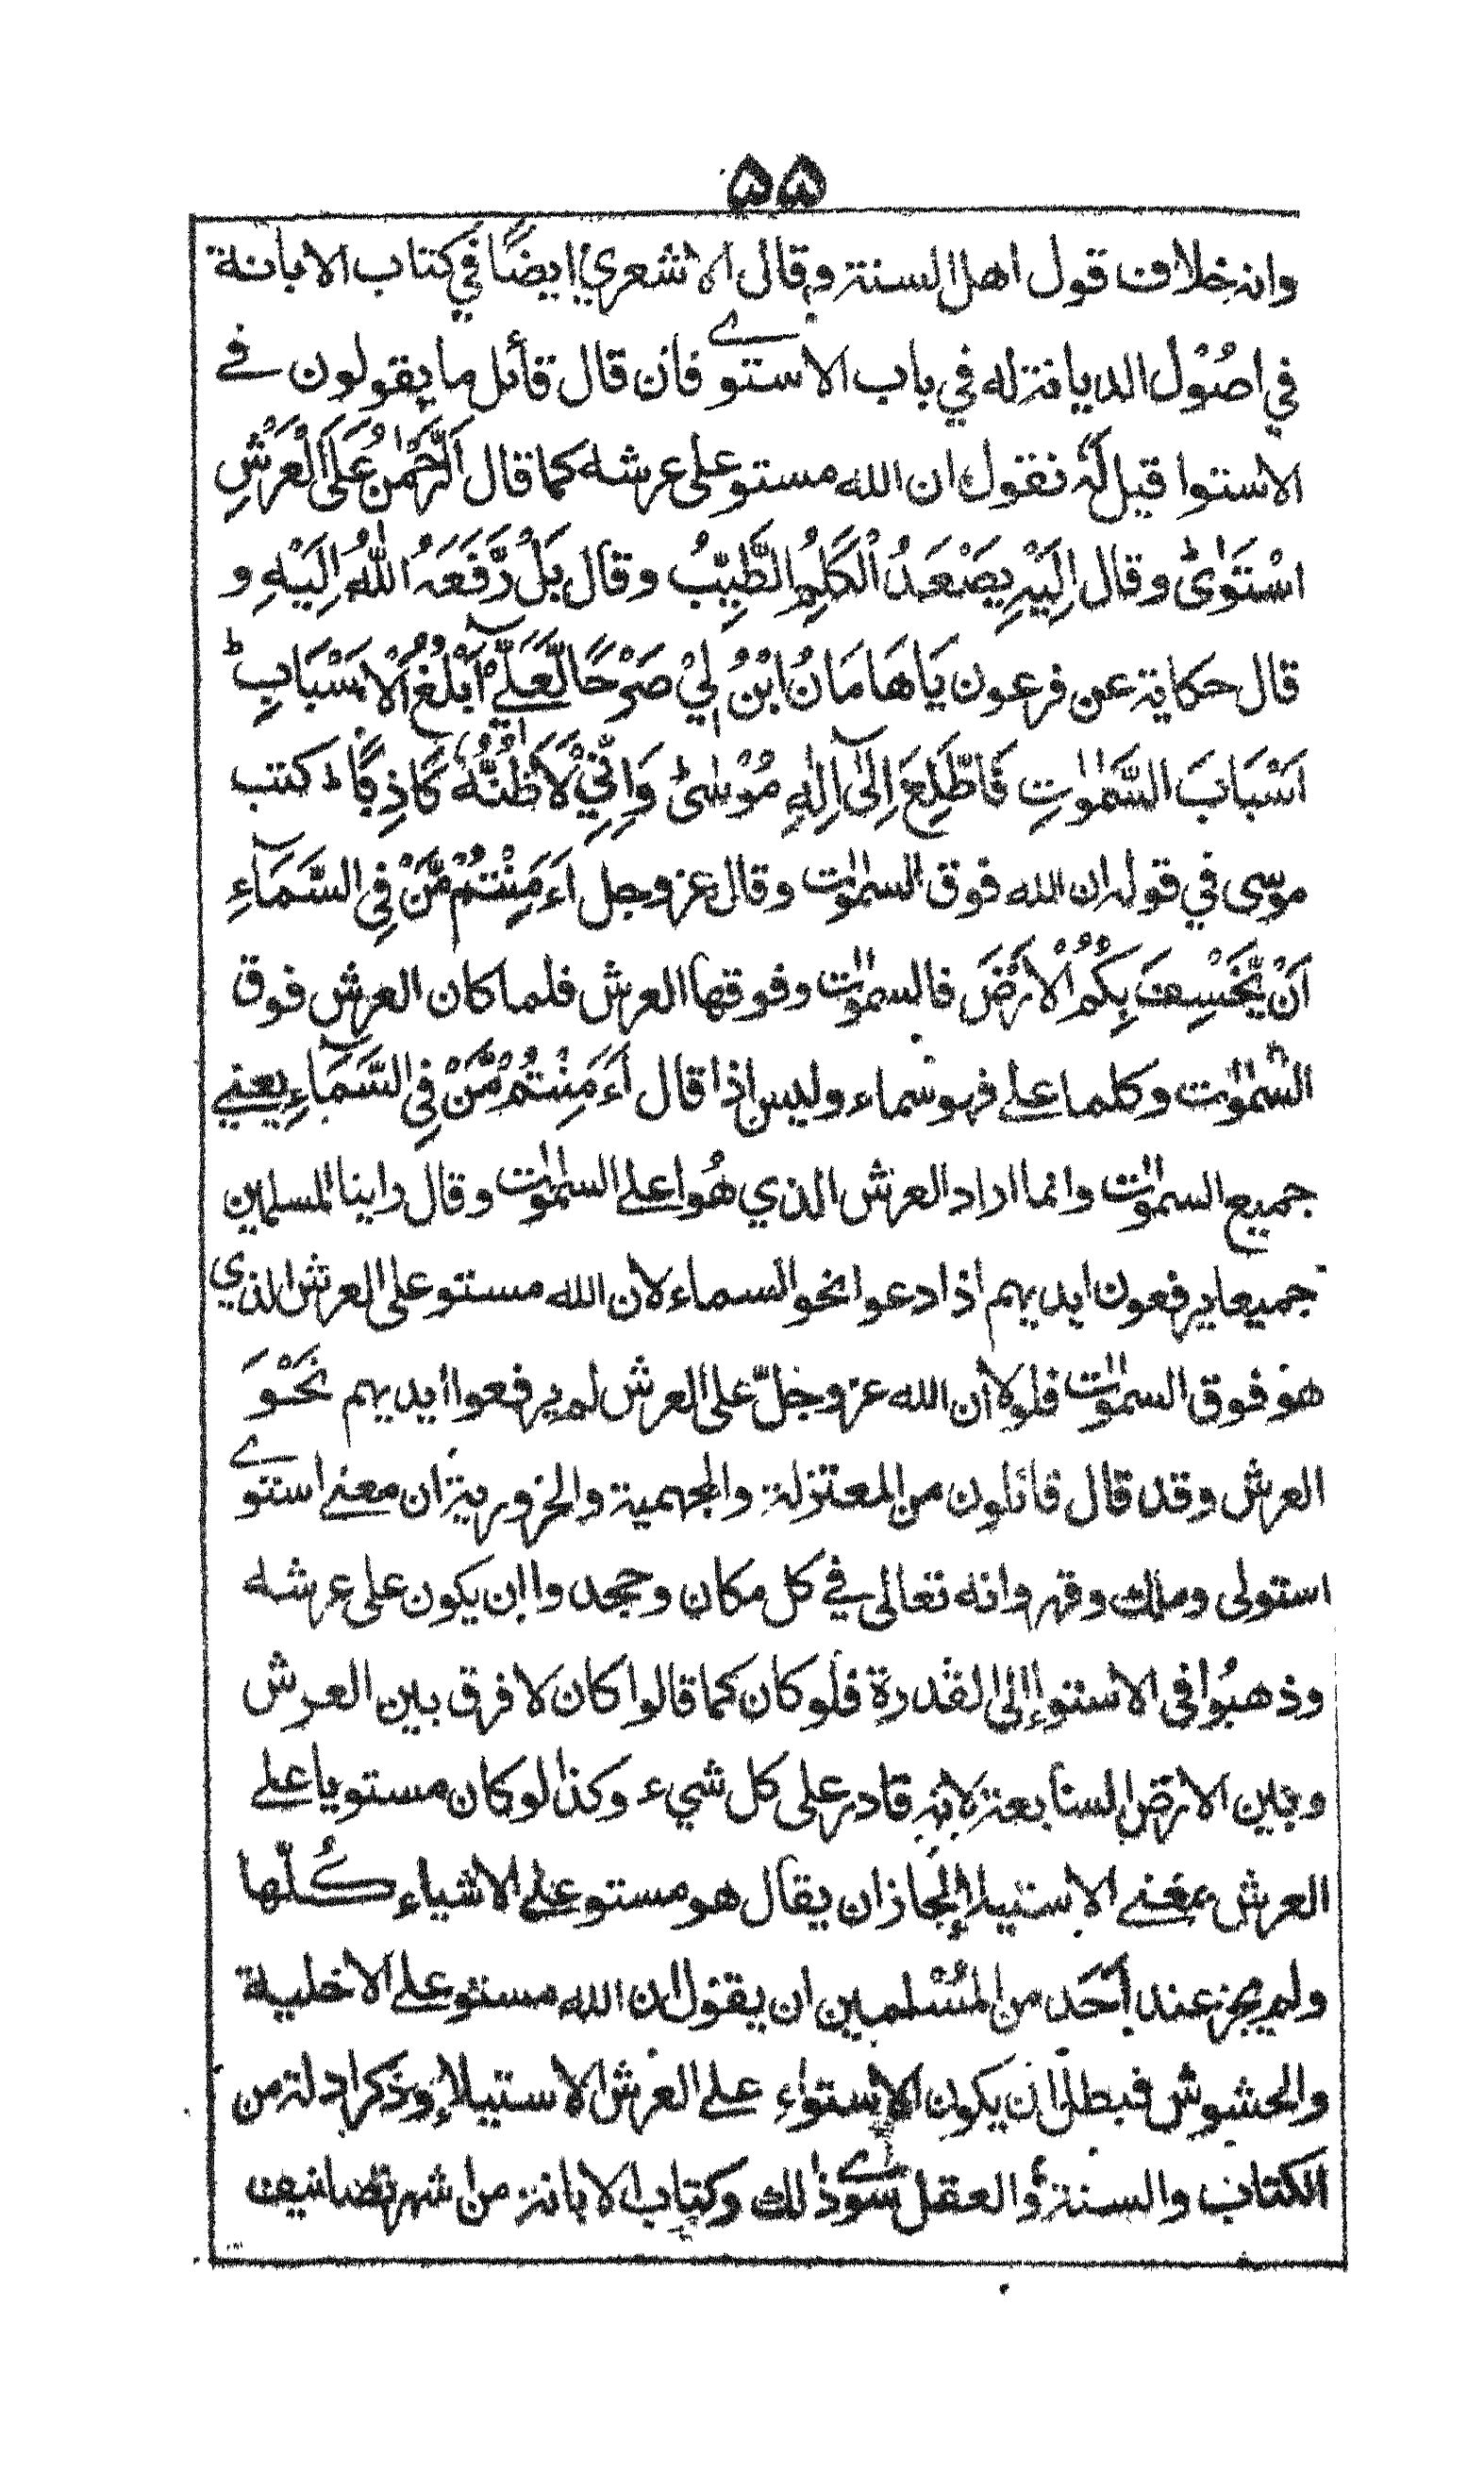 ۵۵
وانه خلاف قول اهل السنة وقال الاشعري ايضًا في كتاب الابانة
في اصُوْل الديانة له في باب الاستوے فان قال قائل ما يقولون فے
الاستوا قيل لَهٗ نقول ان الله مستو على عرشه كما قال اَلرَّحْمٰنُ عَلَى الْعَرْشِ
اسْتَوٰىؕ وقال اِلَيْهِ يَصْعَدُ الْكَلِمُ الطَّيِّبُ وقال بَلْ رَّفَعَهُ اللّٰهُ اِلَيْهِ و
قال حكاية عن فرعون يَا هَامَانُ ابْنُ لِيْ صَرْحًا لَّعَلِّيْٓ اَبْلُغُ الْاَسْبَابِؕ
اَسْبَابَ السَّمٰوٰتِ فَاَطَّلِعَ اِلٰٓى اِلٰهِ مُوْسٰىؕ وَاِنِّيْ لَاَظُنُّهٗ كَاذِبًاؕ كذب
موسى في قوله ان الله فوق السمٰوٰت وقال عز وجل ءَاَمِنْتُمْ مَّنْ فِى السَّمَآءِ
اَنْ يَّخْسِفَ بِكُمُ الْاَرْضَ فالسمٰوٰت وفوقها العرش فلما كان العرش فوق
السّمٰوٰت وكلما علے فهو سماء وليس اذا قال ءَاَمِنْتُمْ مَّنْ فِى السَّمَآءِ يعنے
جميع السمٰوٰت وانما اراد العرش الذي هُو اعلے السمٰوٰت وقال راينا المسلمين
جميعا يرفعون ايديهم اذا دعوا نحو السماء لان الله مستو على العرش الذي
هو فوق السمٰوٰت فلولا أن الله عز وجلّ على العرش لم يرفعوا ايديهم نَحْوَ
العرش وقد قال قائلون من المعتزلة والجهمية والحزورية ان معنے استوے
استولى وملك وقهر وانه تعالى في كل مكان وجحدوا ان يكون على عرشه
وذهبُوا فى الاستوإ الى القدرة فلو كان كما قالوا كان لا فرق بين العرش
وبين الارض السابعة لانه قادر على كل شيء وكذا لو كان مستويا علے
العرش بمعَنے الاستيلاء لجاز ان يقال هو مستو علے الاشياء كُلّها
ولم يجز عند اَحَد من المُسْلمين ان يقول ان الله مستو علے الاخلية
والحشوش فبطل ان يكون الاستواء علے العرش الاستيلاء وذكر ادلة من
الكتاب والسنة والعقل سوے ذٰلك وكتاب الابانة من اشهر تصانيف